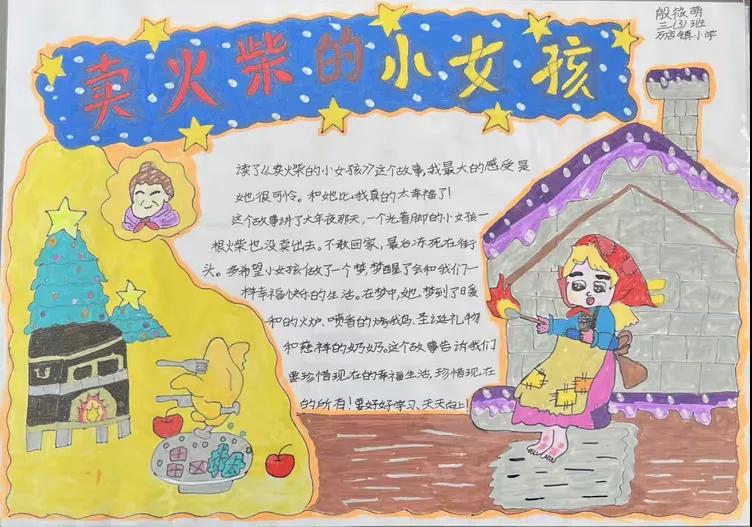 卖火柴的小女孩
殷薇萌
三(3)班
万店镇小学
读了《卖火柴的小女孩》这个故事,我最大的感受是
她很可怜。和她比,我真的太幸福了!
这个故事讲了大年夜那天,一个光着脚的小女孩一
根火柴也没卖出去。不敢回家,最后冻死在街
头。多希望小女孩做了一个梦,梦醒了会和我们一
样幸福快乐的生活。在梦中,她梦到了暖
和的火炉、喷香的烤鹅、圣诞礼物
和慈祥的奶奶。这个故事告诉我们
要珍惜现在的幸福生活,珍惜现在
的所有!要好好学习、天天向上!